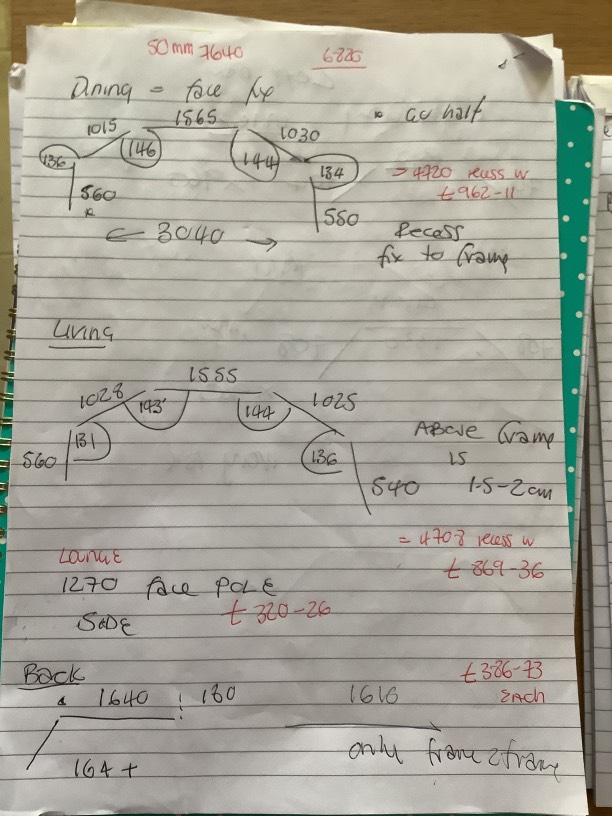 50mm 7640 6825
Dining = face fix
1015 1565 1030
136 146 144 134
560 550
← 3040 →
= 4720 recess w
£962-11
Recess
fix to frame
Living
1028 1555 1025
131 143 144 136
560 540
Above frame
is
1.5-2cm
= 4708 recess w
£869-36
Lounge
1270 face POLE
SIDE
£320-26
Back
1640 180 1616
£386-73
EACH
164+
only frame 2 frame